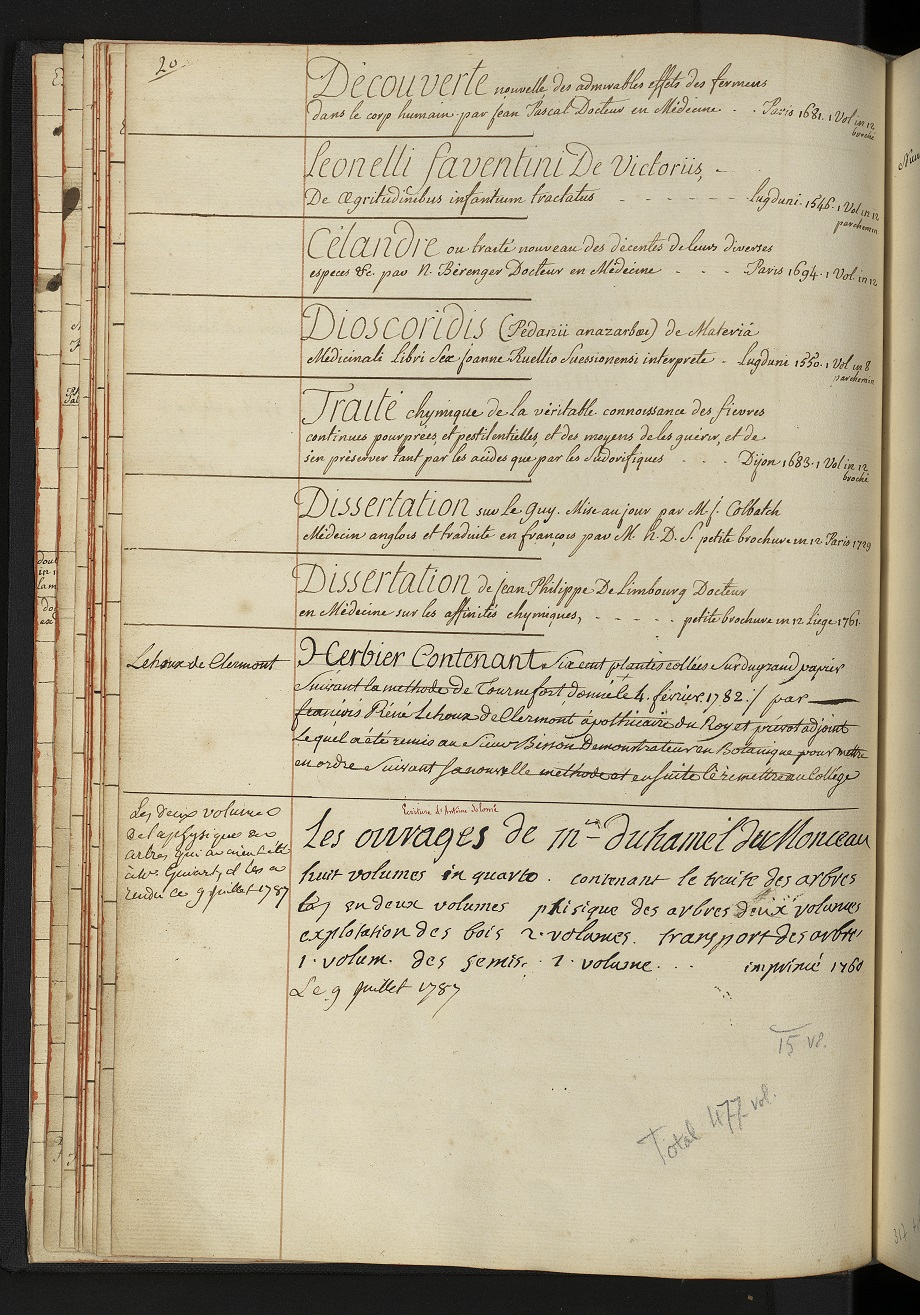 20
Découverte nouvelle des admirables effets des fermens
dans le corp humain par jean Pascal Docteur en Médecine - . Paris 1681. 1 Vol in 12
broché
Leonelli faventini De Victoriis, -
De Ægritudinibus infantium tractatus - - - - - - - Lugduni. 1546. 1 Vol in 12
parchemin
Célandre ou traité nouveau des décentes de leurs diverses
especes &c. par N. Bérenger Docteur en Médécine - - - - Paris 1694. 1 Vol. in 12
Dioscoridis (Pedanii anazarbæ) de Materiâ
Médicinali Libri Sex joanne Ruellio Suessionensi interprete - Lugduni 1550. 1 Vol in 8
parchemin
Traité chymique de la véritable connoissance des fievres
continues pourprées, et pestilentielles, et des moyens de les guérir, et de
s'en préserver tant par les acides que par les Sudorifiques - - - - Dijon 1683. 1 Vol in 12
broché
Dissertation sur Le Guy. Mise au jour par M. j. Colbatch
Médecin anglois et traduite en françois par M. N. D. S. petite brochure in 12 Paris 1729
Dissertation de jean Philippe De Limbourg Docteur
en Médecine sur les affinités chymiques, - - - - - petite brochure in 12 Liege 1761.
Lehoux de Clermont
Herbier Contenant Six cent plantes collées Sur du grand papier
Suivant la methode de Tournefort, donné le 4. février. 1782 :/ par
francois Réné Lehoux de Clermont apothicaire du Roy et prévot adjoint
Lequel a été remis au Sieur Bisson Demonstrateur en Botanique pour mettre
en ordre Suivant sa nouvelle methode et ensuite le remettre au Collége
Les deux volumes
de la physique des
arbres qui avoient été
à Mr Guiart, il les a
rendu ce 9 juillet 1787
Ecriture d'Antoine
Les ouvrages de mr duhamel du Monceau
huit volumes in quarto. contenant le traite des arbres
en deux volumes phisique des arbres deux volumes
explotation des bois 2. volumes. transport des arbre
1. volum. des semis. 1. volume. . . . imprimé 1760
Le 9 juillet 1787
15 v8.
Total 477 vol.